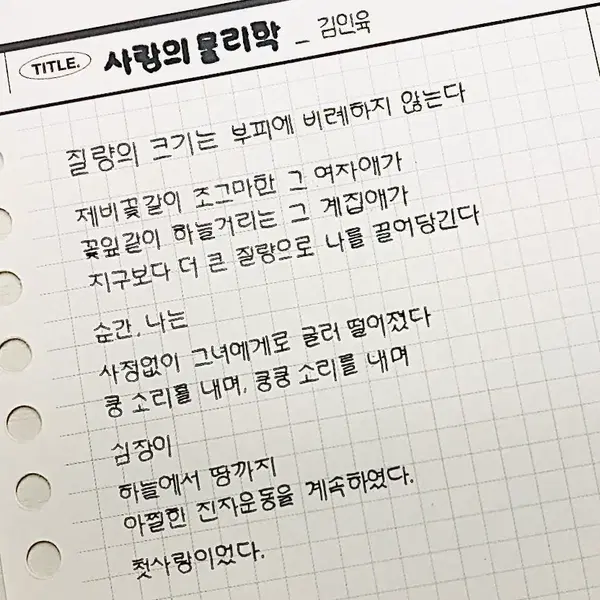 TITLE. 사랑의 물리학 _ 김인육
질량의 크기는 부피에 비례하지 않는다
제비꽃같이 조그마한 그 여자애가
꽃잎같이 하늘거리는 그 계집애가
지구보다 더 큰 질량으로 나를 끌어당긴다
순간, 나는
사정없이 그녀에게로 굴러 떨어졌다
쿵 소리를 내며, 쿵쿵 소리를 내며
심장이
하늘에서 땅까지
아찔한 진자운동을 계속하였다.
첫사랑이었다.